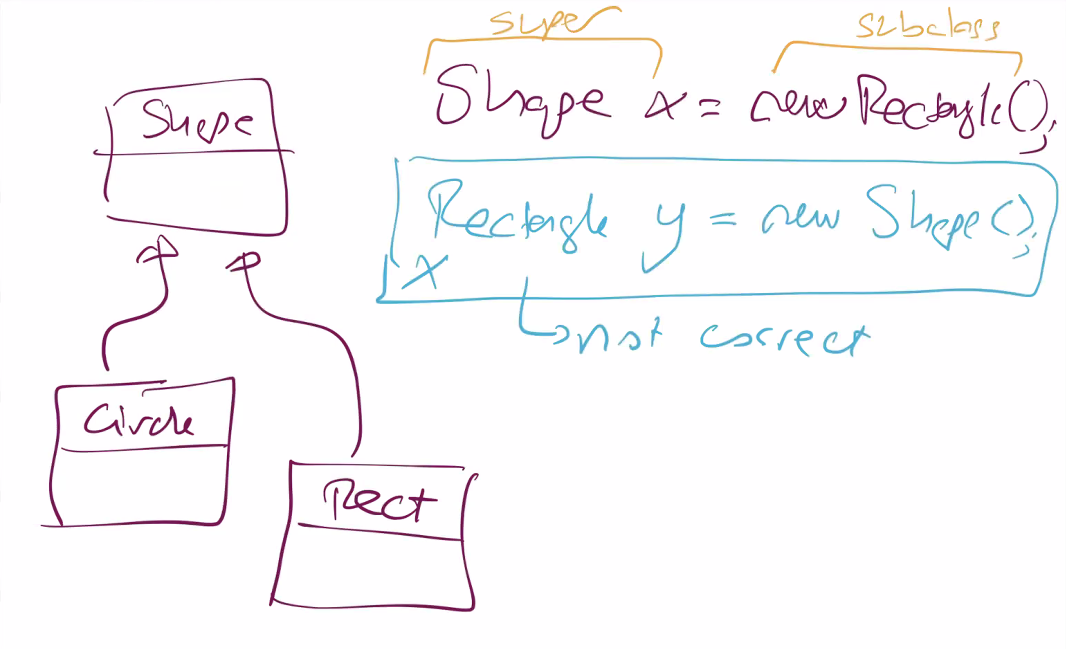 super subclass
Shape x = new Rectangle();
Shape
Rectangle y = new Shape();
X
not correct
Circle
Rect